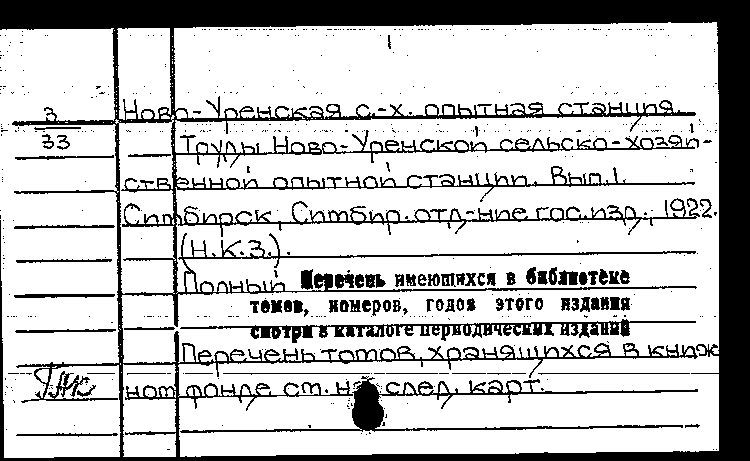 З
33
Ново-Уренская с.-х. опытная станция.
Труды Ново-Уренской сельско-хозяй-
ственной опытной станции. Вып.1.
Симбирск, Симбир.отд-ние гос.изд., 1922.
(Н.К.З.).
Полный Перечень имеющихся в библиотеке
томов, номеров, годов этого издания
смотри в каталоге периодических изданий
Перечень томов, хранящихся в книж
ном фонде см. на след. карт.